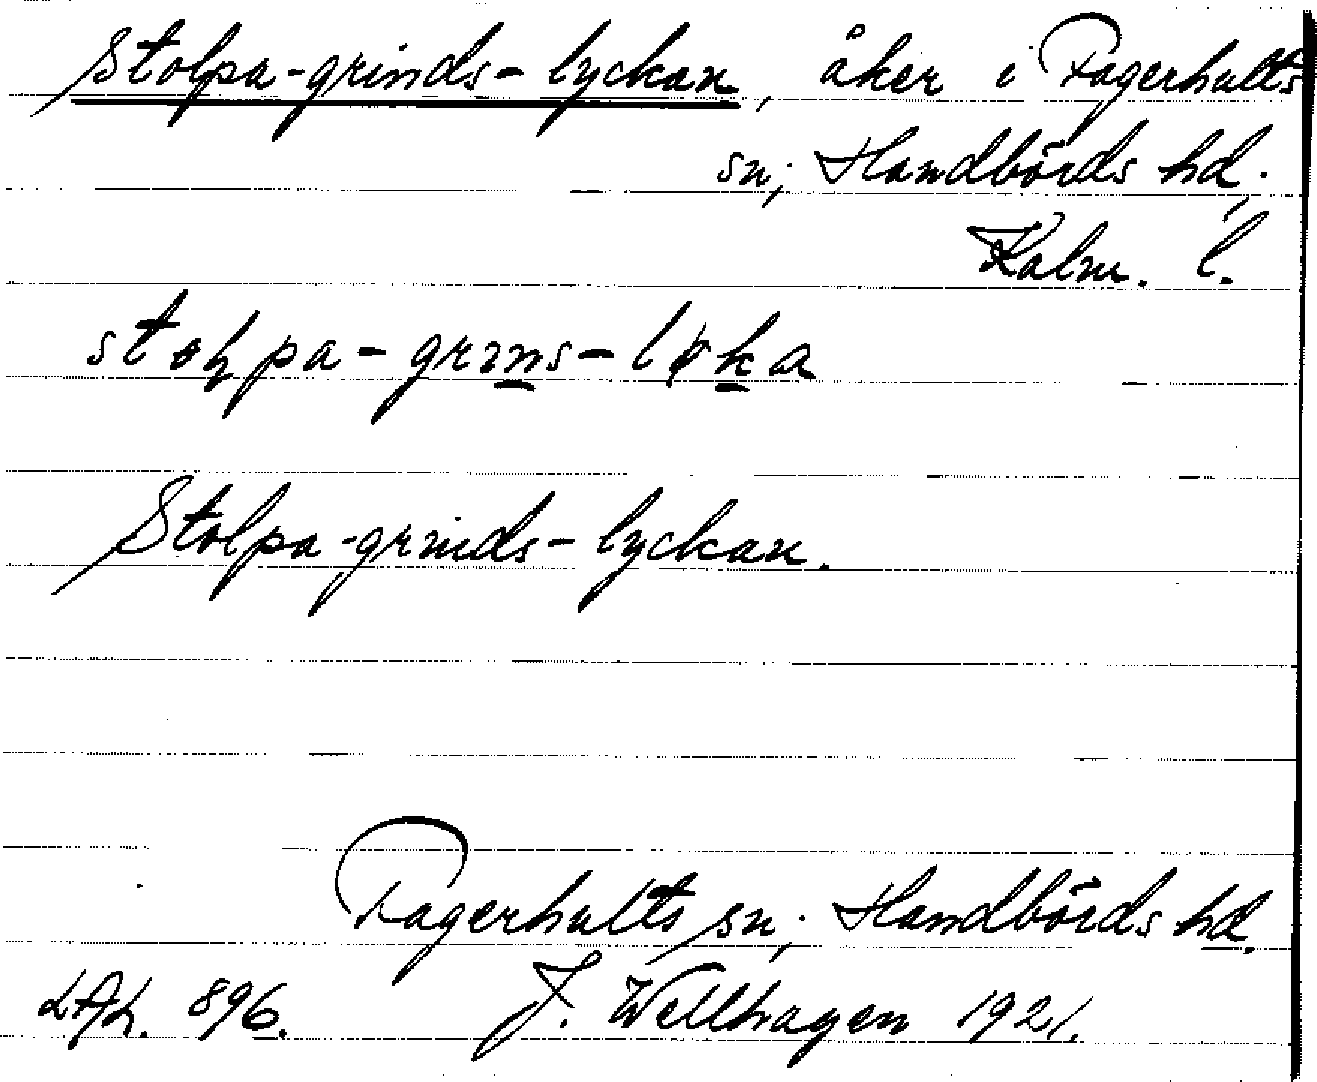 Stolpa-grinds-lyckan, åker i Fagerhults
sn, Handbörds hd,
Kalm. l.
stoļpa-grıns-lyka
Stolpa-grinds-lyckan.
Fagerhults sn, Handbörds hd.
LAL. 896. J. Wellhagen 1921.